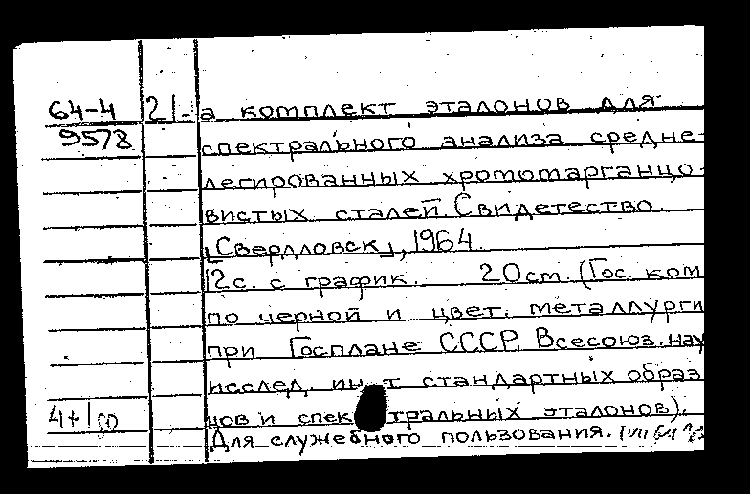 64-4 21.- а комплект эталонов для
9578 спектрального анализа средне-
легированных хромомарганцо-
вистых сталей. Свидетество.
[Свердловск], 1964.
12с. с график. 20см. (Гос. ком
по черной и цвет. металлурги
при Госплане СССР. Всесоюз. нау
исслед. ин-т стандартных образ
4+1 цов и спектральных эталонов).
Для служебного пользования.